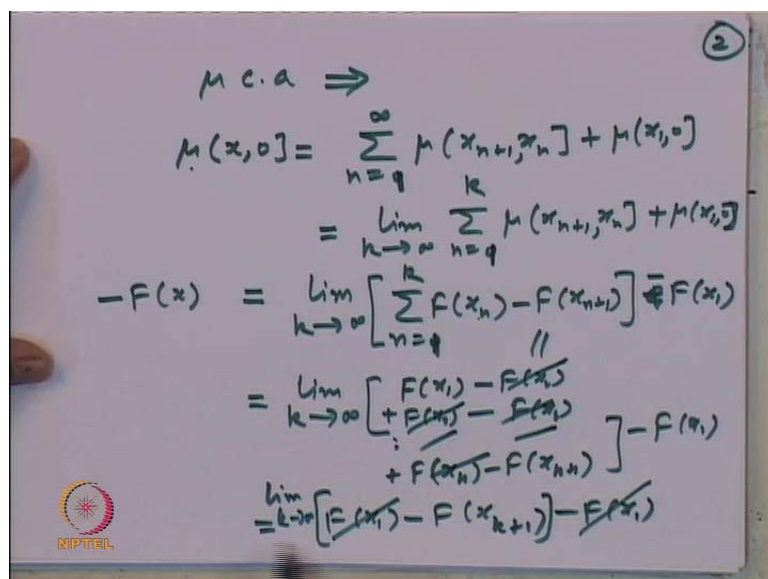 2
μ c.a ⇒
μ(x,0] = ∑_{n=1}^{∞} μ(x_{n+1}, x_n] + μ(x_1, 0]
= lim_{k→∞} ∑_{n=1}^{k} μ(x_{n+1}, x_n] + μ(x_1, 0]
-F(x) = lim_{k→∞} [∑_{n=1}^{k} F(x_n) - F(x_{n+1})] - F(x_1)
= lim_{k→∞} [F(x_1) - F(x_2)
+ F(x_2) - F(x_3)
⋮
+ F(x_n) - F(x_{n+1})] - F(x_1)
= lim_{k→∞} [F(x_1) - F(x_{k+1})] - F(x_1)
NPTEL